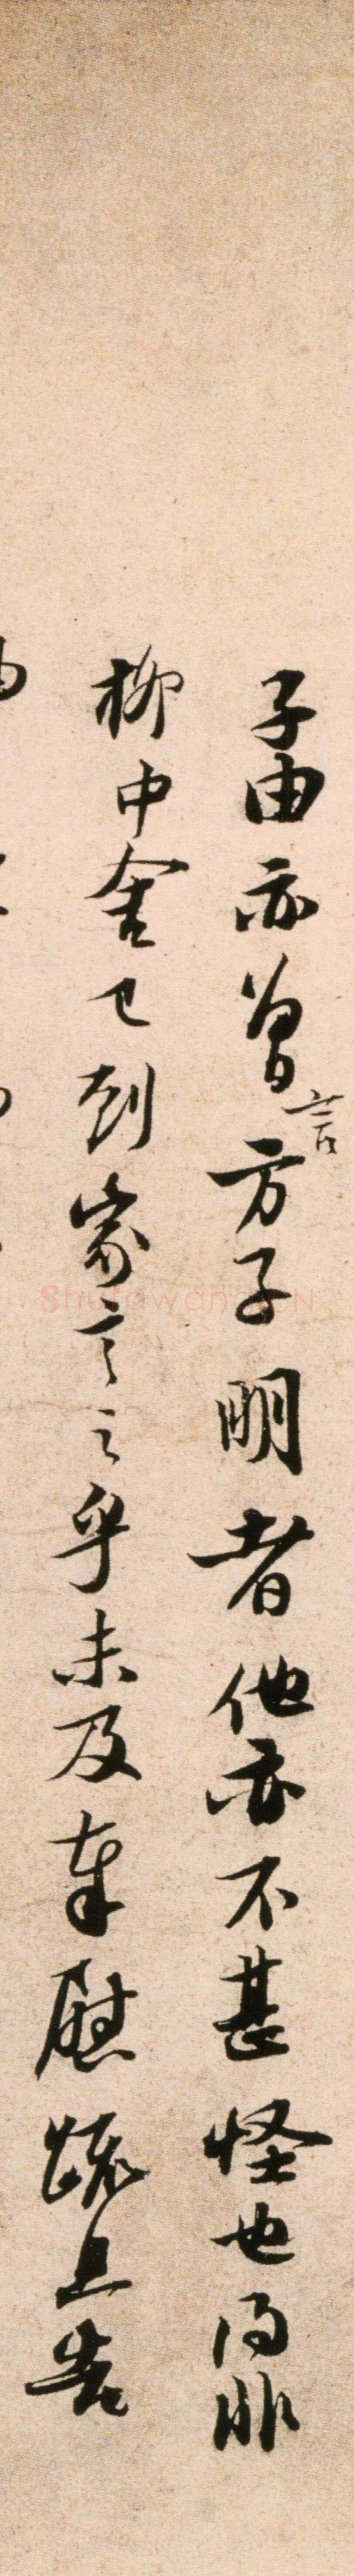 子由亦曾言方子明者他亦不甚怪也得非
柳中舍已到家言之乎未及奉慰疏且告